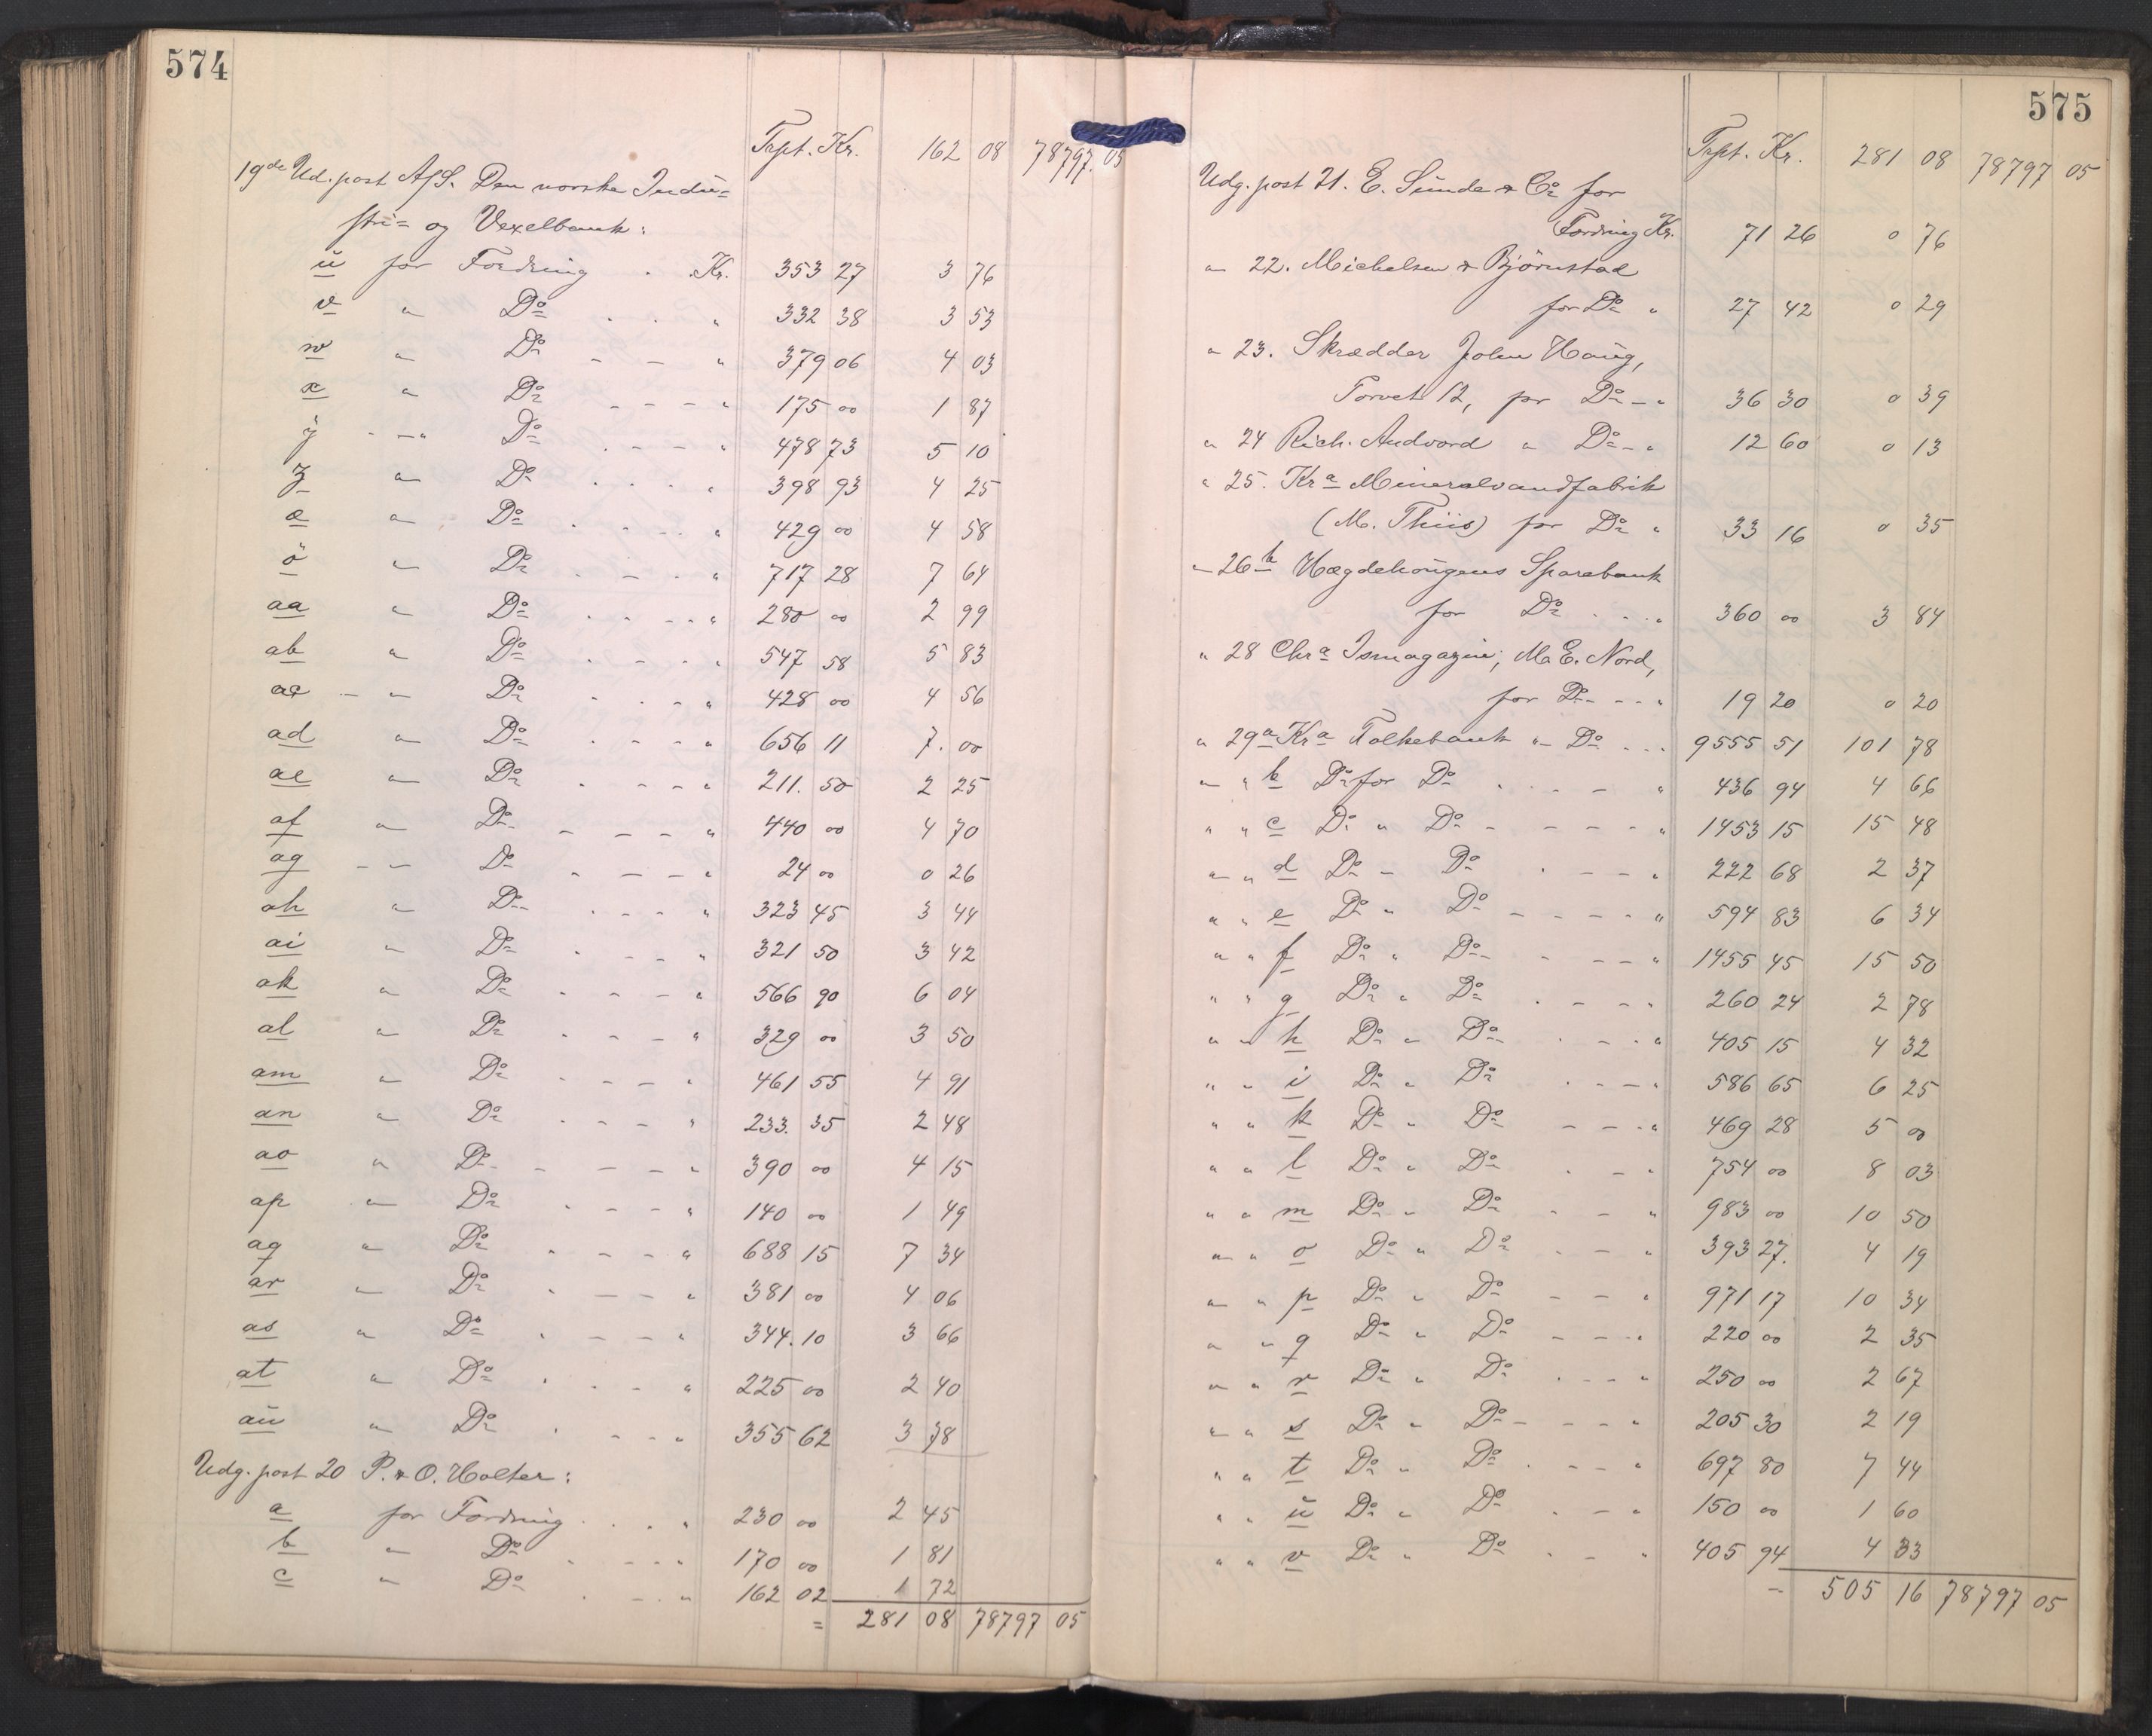 574
Trpt. Kr. 162 08 78797 05
19de Ud. post A/S. Den norske Indu=
stri= og Vexelbank:
u for Fordring . Kr. 353 27 3 76
v " Do . . " 332 38 3 53
w " Do - - " 379 06 4 03
x " Do - - - " 175 00 1 87
y - " Do . - - - 478 73 5 10
z " Do . . . " 398 93 4 25
æ " Do . . - . " 429 00 4 58
ö " Do . - . " 717 28 7 64
aa " Do . - - . " 280 00 2 99
ab " Do . - . " 547 58 5 83
ac - " Do . . - " 428 00 4 56
ad " Do . - - " 656 11 7. 00
ae " Do . - - " 211. 50 2 25
af " Do - - - - " 440 00 4 70
ag - " Do . - - - " 24 00 0 26
ah " Do . - - " 323 45 3 44
ai " Do . - - " 321 50 3 42
ak " Do . - - " 566 90 6 04
al " Do . - - " 329 00 3 50
am " Do . - - - " 461 55 4 91
an " Do . - - " 233. 35 2 48
ao " Do - - - - " 390 00 4 15
ap " Do . - - - " 140 00 1 49
aq " Do . - - - " 688 15 7 34
ar " Do . - - " 381 00 4 06
as " Do . - - " 344. 10 3 66
at " Do . . - " 225 00 2 40
au " Do . - - " 355 62 3 78
Udg. post 20 P. & O. Holter:
a for Fordring . . . " 230 00 2 45
b " Do . - - - " 170 00 1 81
c " Do . - - " 162 02 1 72
= 281 08 78797 05
575
Trpt. Kr. 281 08 78797 05
Udg. post 21. E. Sunde & Co for
Fordring Kr. 71 26 0 76
" 22. Michelsen & Björnstad
for Do " 27 42 0 29
" 23. Skrædder John Haug,
Torvet 12, for Do - " 36 30 0 39
" 24 Rich. Andvord " Do - " 12 60 0 13
" 25. Kra Mineralvandfabrik
(M. Thiis) for Do " 33 16 0 35
" 26 b Hægdehougens Sparebank
for Do . - . " 360 00 3 84
" 28 Chra Ismagazin, M. E. Nord,
for Do - - - " 19 20 0 20
" 29 a Kra Folkebank " Do . . . 9555 51 101 78
" " b Do for Do . . - " 436 94 4 66
" " c Do " Do - - - - " 1453 15 15 48
" " d Do - Do . - - " 222 68 2 37
" " e Do " Do - - - - " 594 83 6 34
" " f Do " Do - - - " 1455 45 15 50
" " g Do " Do . - - " 260 24 2 78
" " h Do " Do . - . " 405 15 4 32
" " i Do " Do . - - " 586 65 6 25
" " k Do " Do - - . " 469 28 5 00
" " l Do " Do . - " 754 00 8 03
" " m Do " Do - - " 983 00 10 50
" " o Do " Do . - " 393 27. 4 19
" " p Do " Do - - " 971 17 10 34
" " q Do " Do - - . " 220 00 2 35
" " r Do " Do . - - " 250 00 2 67
" " s Do " Do - - - " 205 30 2 19
" " t Do " Do . - - " 697 80 7 44
" " u Do " Do . - " 150 00 1 60
" " v Do " Do . - " 405 94 4 33
= 505 16 78797 05